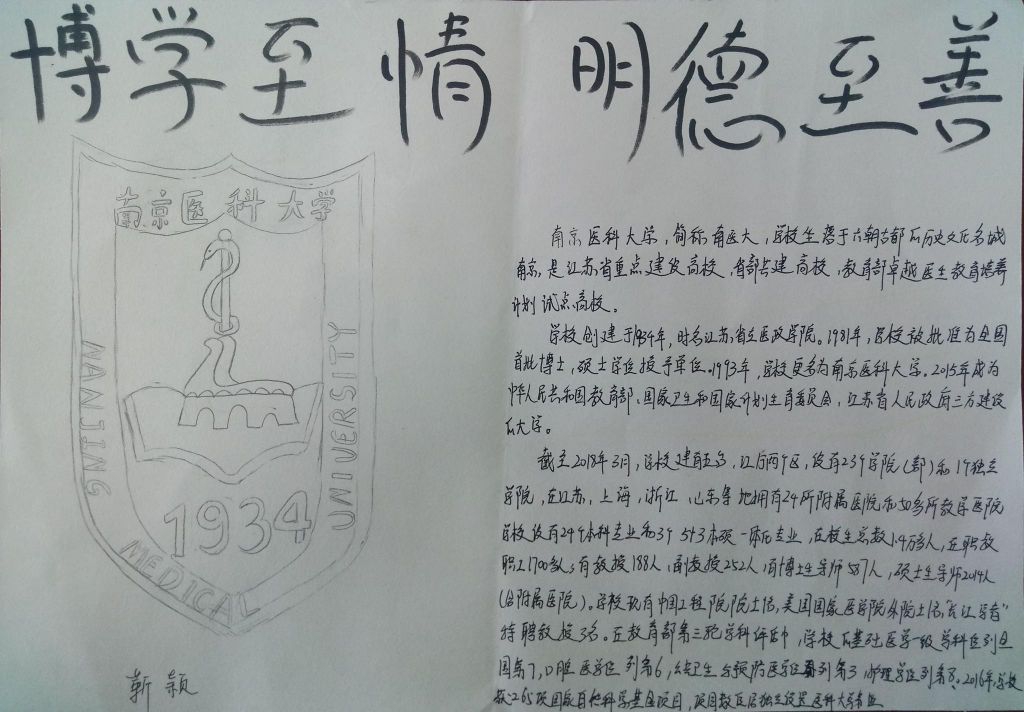 博学至情 明德至善
南京医科大学
NANJING
MEDICAL
UNIVERSITY
1934
南京医科大学,简称南医大,学校坐落于六朝古都历史文化名城
南京,是江苏省重点建设高校,省部共建高校,教育部卓越医生教育培养
计划试点高校。
学校创建于1934年,时名江苏省立医政学院。1981年,学校被批准为全国
首批博士,硕士学位授予单位。1993年,学校更名为南京医科大学。2015年成为
中华人民共和国教育部、国家卫生和国家计划生育委员会,江苏省人民政府三方建设
大学。
截至2018年3月,学校建有五台,江宁两个区,设有23个学院(部)和1个独立
学院,在江苏,上海,浙江,山东等地拥有24所附属医院和50多所教学医院
学校设有24个本科专业和3个 本硕一体化专业,在校生总数1.4万多人,在职教
职工1700多人,有教授188人,副教授252人,有博士生导师587人,硕士生导师2014人
(含附属医院)。学校现有中国工程院院士1名,美国国家医学院外院士1名,"长江学者"
特聘教授3名。在教育部第三轮学科评估中,学校 基础医学一级学科位列全
国第7,口腔医学位列第6,公共卫生与预防医学位列第3,护理学位列第8。2016年,学校
获265项国家自然科学基金项目,项目数 居独立设置医科大学
靳颖